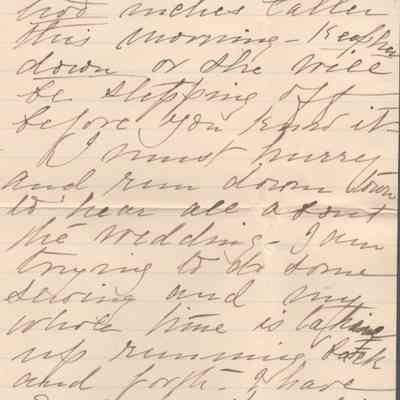 two inches taller
this morning - Keep her
down or she will
be stepping off
before you know it -
I must hurry
and run down town
to hear all about
the wedding - I am
trying to do some
sewing and my
whole time is taking
up running back
and forth. I have